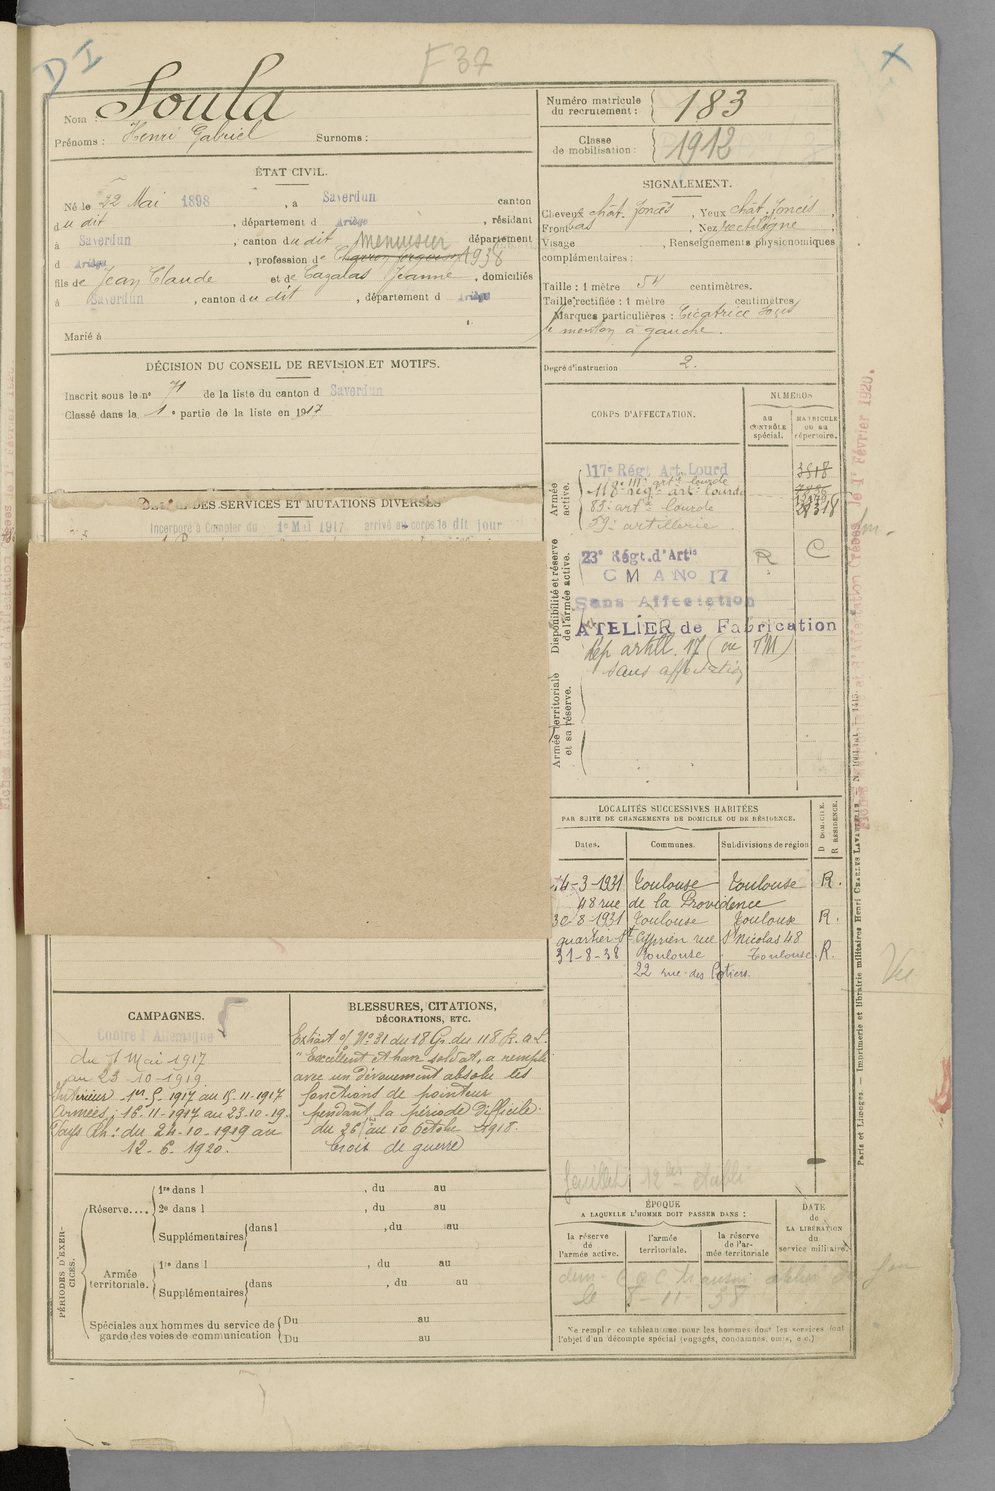 DI
F 37
X
Nom : Soula
Prénoms : Henri Gabriel Surnoms :
Numéro matricule du recrutement : 183
Classe de mobilisation : 1912
ÉTAT CIVIL.
Né le 22 Mai 1898, à Saverdun canton
du dit, département d Ariège, résidant
à Saverdun, canton du dit menuisier département
d Ariège, profession de 1938
fils de Jean Claude et de Cazalas Jeanne, domiciliés
à Saverdun, canton du dit, département d Ariège
Marié à
SIGNALEMENT.
Cheveux chât. foncés, Yeux chât. foncés,
Front bas, Nez rectiligne
Visage , Renseignements physionomiques
complémentaires :
Taille : 1 mètre 54 centimètres.
Taille rectifiée : 1 mètre centimètres
Marques particulières : Cicatrice sous
le menton à gauche.
Degré d'instruction 2.
DÉCISION DU CONSEIL DE REVISION ET MOTIFS.
Inscrit sous le nº 71 de la liste du canton d Saverdun
Classé dans la 1e partie de la liste en 1917
DES SERVICES ET MUTATIONS DIVERSES
Incorporé à Compter du 1er Mai 1917 arrivé au corps le dit jour
CORPS D'AFFECTATION.
NUMÉROS
au CONTRÔLE spécial.
MATRICULE ou au répertoire.
Armée active.
117e Régt Art. Lourd 3518
118e rég. art. lourde
83e artie lourde
artillerie
Disponibilité et réserve de l'armée active.
23e Régt. d'Artie R C
C M A No 17
Sans Affectation
ATELIER de Fabrication
Dep artill. 17 (ou TM)
sans affectation
Armée territoriale et sa réserve.
LOCALITÉS SUCCESSIVES HABITÉES
PAR SUITE DE CHANGEMENTS DE DOMICILE OU DE RÉSIDENCE.
Dates. Communes. Subdivisions de région D DOMICILE. R RÉSIDENCE.
-3-1931 Toulouse Toulouse R.
48 rue de la Providence
30-8-1931 Toulouse Toulouse R.
quartier St Cyprien rue St Nicolas 48
31-8-38 Toulouse Toulouse R.
22 rue des Potiers.
CAMPAGNES.
Contre l'Allemagne
du 1 Mai 1917
au 23-10-1919.
Intérieur 1er-5-1917 au 15-11-1917
Armées : 16-11-1917 au 23-10-19.
Pays Rh : du 24-10-1919 au
12-6-1920.
BLESSURES, CITATIONS,
DÉCORATIONS, ETC.
Extrait of Nº 31 du 18 G. du 118 R.a.L.
"Excellent et brave soldat, a rempli
avec un dévouement absolu les
fonctions de pointeur
pendant la période difficile
du 26 au 10 Octobre 1918.
Croix de guerre
PÉRIODES D'EXERCICES.
Réserve....
1re dans l , du au
2e dans l , du au
Supplémentaires dans l , du au
Armée territoriale.
1re dans l , du au
Supplémentaires dans , du au
Spéciales aux hommes du service de garde des voies de communication
Du au
Du au
ÉPOQUE
A LAQUELLE L'HOMME DOIT PASSER DANS :
la réserve de l'armée active.
l'armée territoriale.
la réserve de l'armée territoriale
DATE de LA LIBÉRATION du service militaire.
le 8-11-38
Ne remplir ce tableau que pour les hommes dont les services font
l'objet d'un décompte spécial (engagés, condamnés, omis, etc.)
Vu
Paris et Limoges. — Imprimerie et librairie militaires Henri CHARLES LAVAUZELLE.